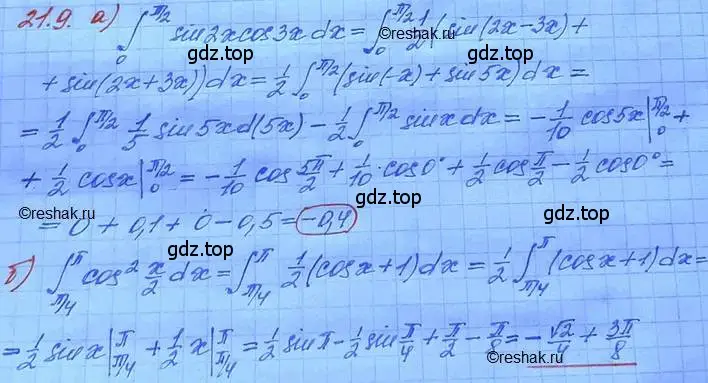 21.9. а) ∫₀^{π/2} sin2xcos3x dx = ∫₀^{π/2} 1/2 (sin(2x-3x)+
gdz.top gdz.top
+ sin(2x+3x))dx = 1/2 ∫₀^{π/2} (sin(-x) + sin5x) dx =
= 1/2 ∫₀^{π/2} 1/5 sin5x d(5x) - 1/2 ∫₀^{π/2} sinx dx = -1/10 cos5x|₀^{π/2} +
©reshak.ru
+ 1/2 cosx|₀^{π/2} = -1/10 cos 5π/2 + 1/10 · cos0° + 1/2 cos π/2 - 1/2 cos0° =
gdz.top
©reshak.ru
= 0 + 0,1 + 0 - 0,5 = -0,4
gdz.top
б) ∫_{π/4}^{π} cos² x/2 dx = ∫_{π/4}^{π} 1/2 (cosx+1) dx = 1/2 ∫_{π/4}^{π} (cosx+1) dx =
gdz.top
= 1/2 sinx|_{π/4}^{π} + 1/2 x|_{π/4}^{π} = 1/2 sinπ - 1/2 sin π/4 + π/2 - π/8 = -√2/4 + 3π/8
©reshak.ru